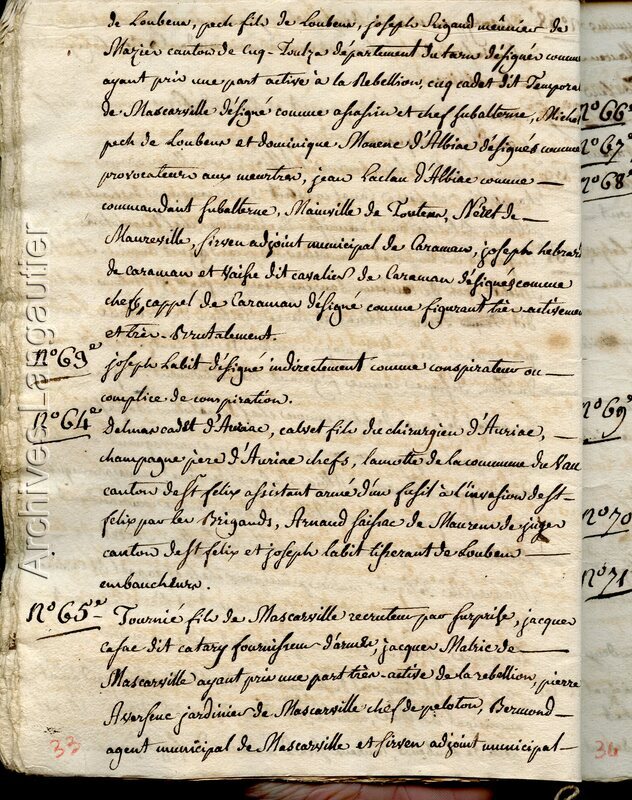 de Loubens, pech fils de Loubens, joseph Rigaud meunier de
Mazier canton de Cuq-Toulza département du tarn désigné comme
ayant pris une part active à la Rebellion, cuq cadet dit Tempora
de Mascarville désigné comme assassin et chef subalterne, Michel
pech de Loubens et dominique Manenc d'Albiac désignés comme
provocateurs aux meurtres, jean Laclau d'Albiac comme —
commandant subalterne, Mainville de Toutens, Noët de —
Maureville, sirven adjoint municipal de Caraman, joseph hebrard
de caraman et Vaisse dit cavalier de Caraman désignés comme
chefs, cappel de Caraman désigné comme figurant très activement
et très-Brutalement.
n° 63e joseph Labit désigné indirectement comme conspirateur ou —
complice de conspiration.
n° 64e Delmas cadet d'Auriac, calvet fils du chirurgien d'Auriac, —
champagne père d'Auriac chefs, lamotte de la commune du Vaux
canton de St felix assistant armé d'un fusil à l'invasion de St-
felix par les Brigands, Arnaud saissac de Maurens de juzes
canton de St felix et joseph labit tisserant de Loubens —
embaucheurs.
n° 65e - Tournié fils de Mascarville recruteur par surprise, jacques
casac dit catary fournisseur d'armes, jacques Matric de —
Mascarville ayant pris une part très-active de la rebellion, pierre
Aversenc jardinier de Mascarville chef de peloton, Bermond —
agent municipal de Mascarville et sirven adjoint municipal —
33
n° 66e
n° 67e
n° 68e
n° 69e
n° 70
n° 71e
34
Archives_Lang